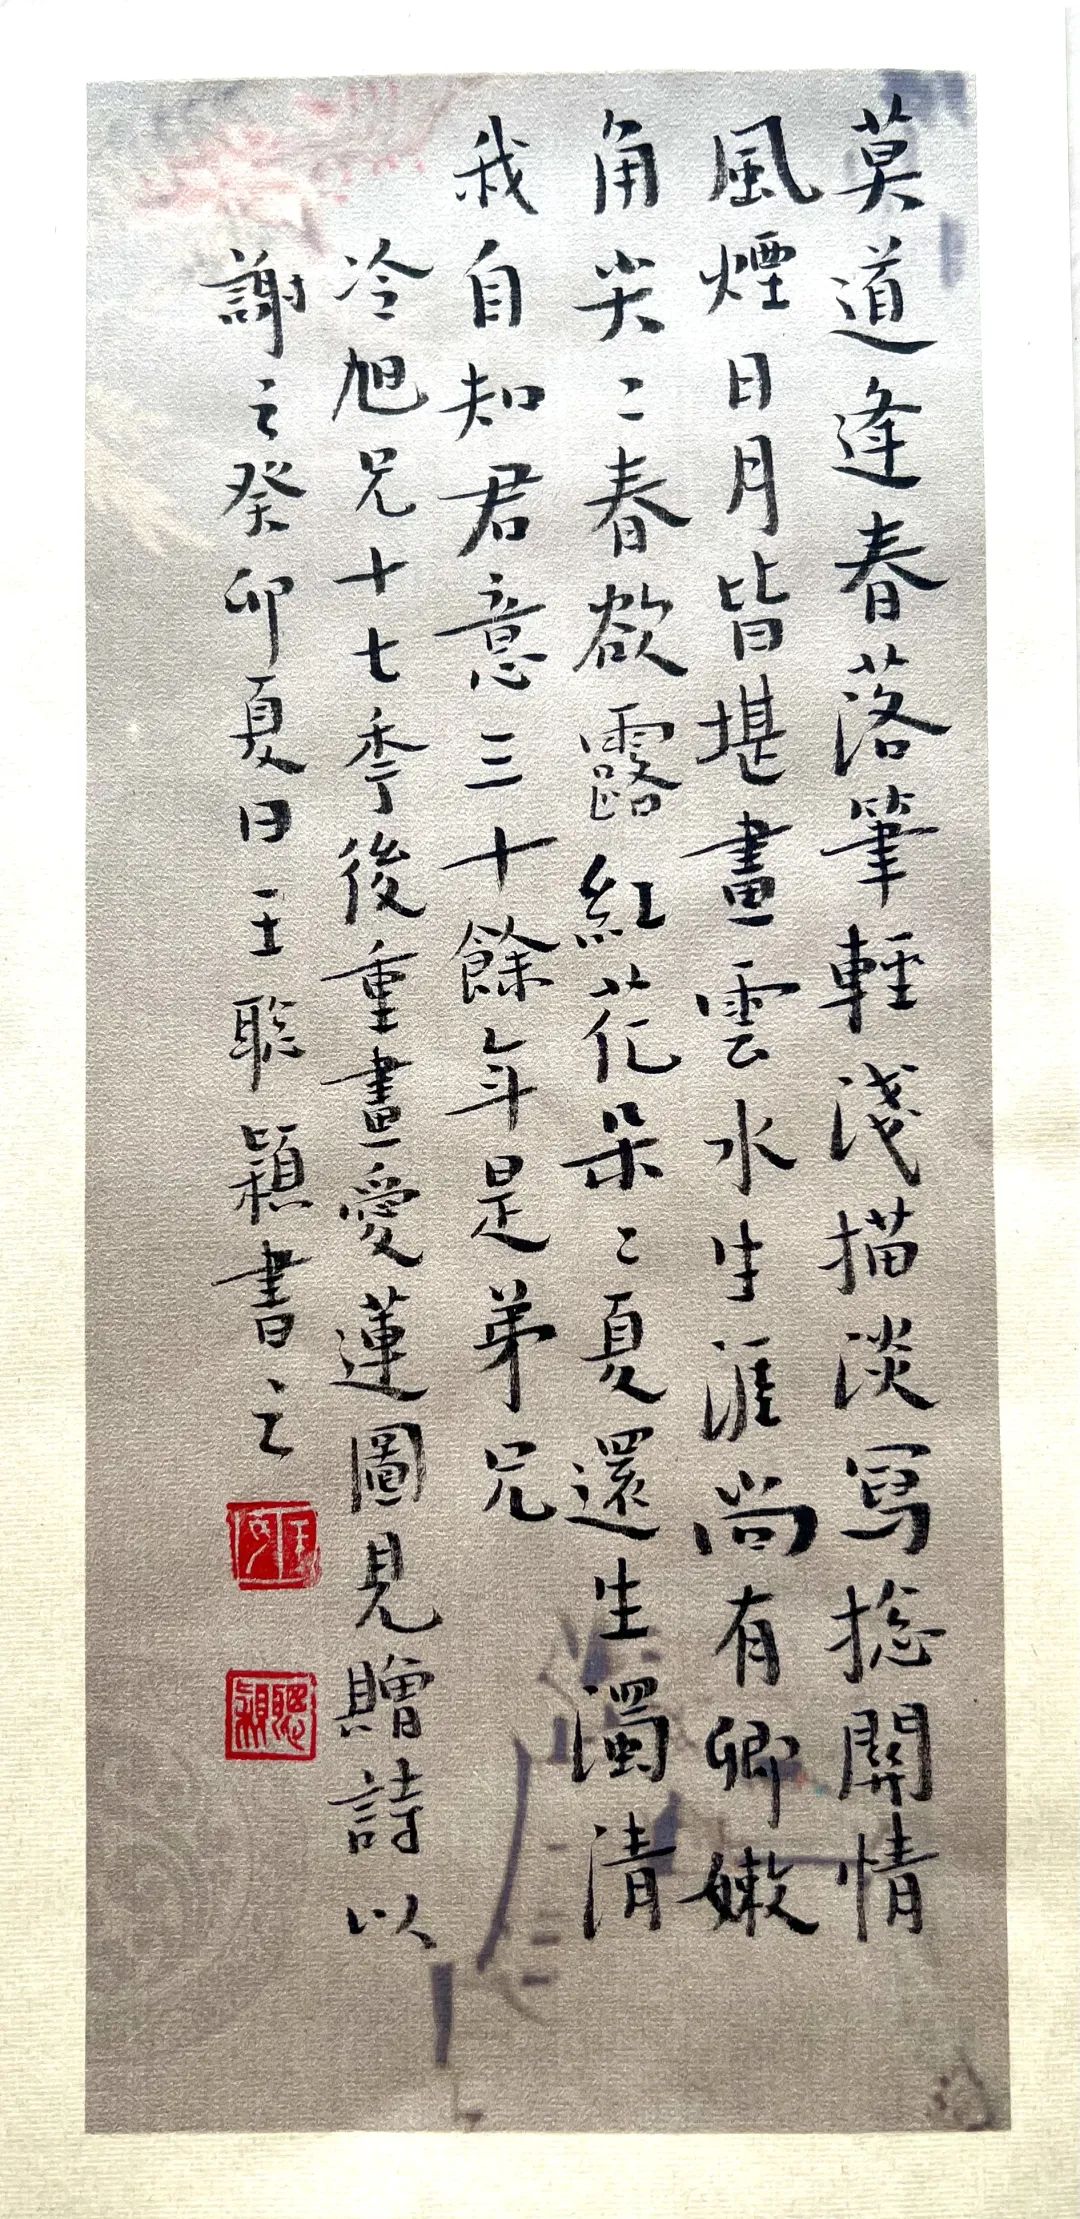 莫道逢春落筆輕淺描淡寫總關情
風煙日月皆堪畫雲水生涯尚有卿嫩
角尖〻春欲露紅花朵〻夏還生濁清
我自知君意三十餘年是弟兄
冷旭兄十七季後重畫愛蓮圖見贈詩以
謝之癸卯夏日王聰穎書之
王
聰穎